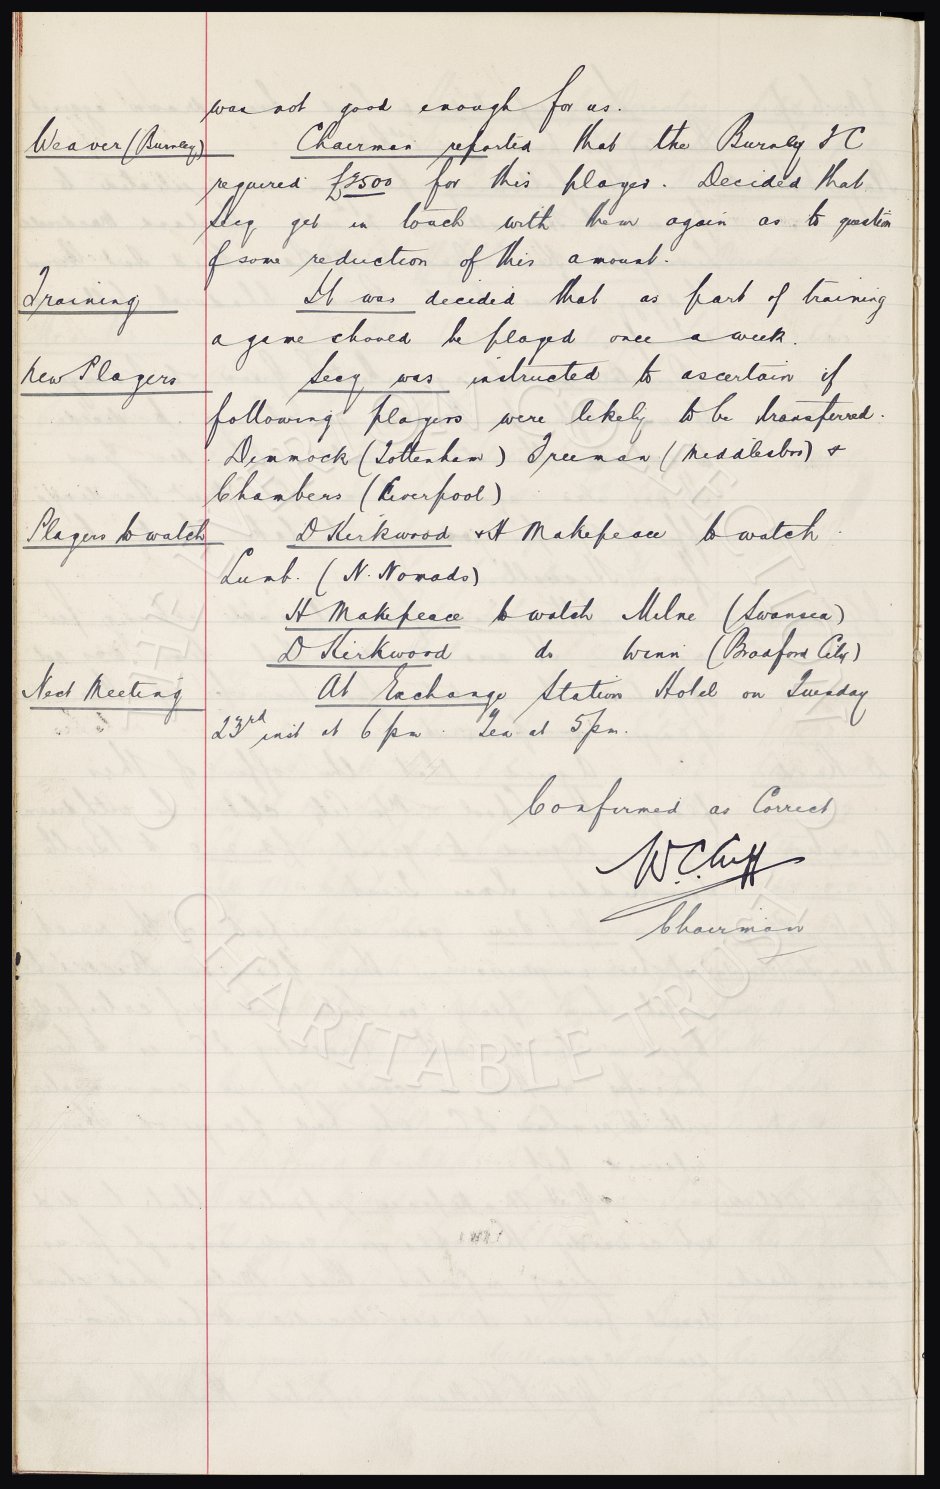 was not good enough for us.
Weaver (Burnley) Chairman reported that the Burnley FC
required £3500 for this player. Decided that
Secy get in touch with them again as to question
of some reduction of this amount.
Training It was decided that as part of training
a game should be played once a week.
New Players Secy was instructed to ascertain if
following players were likely to be transferred.
Dimmock (Tottenham) Freeman (Middlesbro) &
Chambers (Liverpool)
Players to watch D Kirkwood & H Makepeace to watch
Lumb. (N. Nomads)
H Makepeace to watch Milne (Swansea)
D Kirkwood do Winn (Bradford City)
Next Meeting At Exchange Station Hotel on Tuesday
23rd inst at 6 pm. Tea at 5 pm.
Confirmed as Correct
W.C.Cuff
Chairman
THE EVERTON COLLECTION
CHARITABLE TRUST